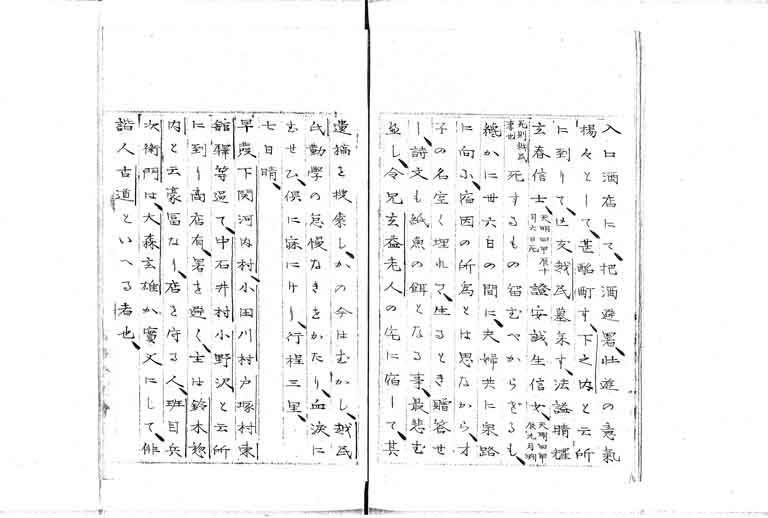 入口酒店にて把酒避暑壮遊の意氣
楊々として甚酩酊す下之内と云所
に到りて亡友越氏墓參す法謚晴耀
玄春信士 天明四甲辰十月六日死 證安誠生信女 天明四甲辰九月
死別 死するもの留むへからざるも
纔かに廿六日の間に夫婦共に泉路
に向ふ宿因の所為とは思なから才
子の名空く埋れて生るとき贈答せ
し詩文も紙魚の餌となる事最悲む
へし令兄玄益老人の宅に宿して其
遺稿を搜索しかの今はむかし越氏
氏勤學の怠慢なきをかたり血淚に
むせひ俱に寐にけり行程三里
七日晴
早霞下関河内村小田川村戸塚村東
舘驛等過て中石井村小野沢と云所
に到り商店有暑を避く主は鈴木惣
内と云豪富なり店を守る人班目兵
次衛門は大森玄雄か實父にして俳
諧人古道といへる者也